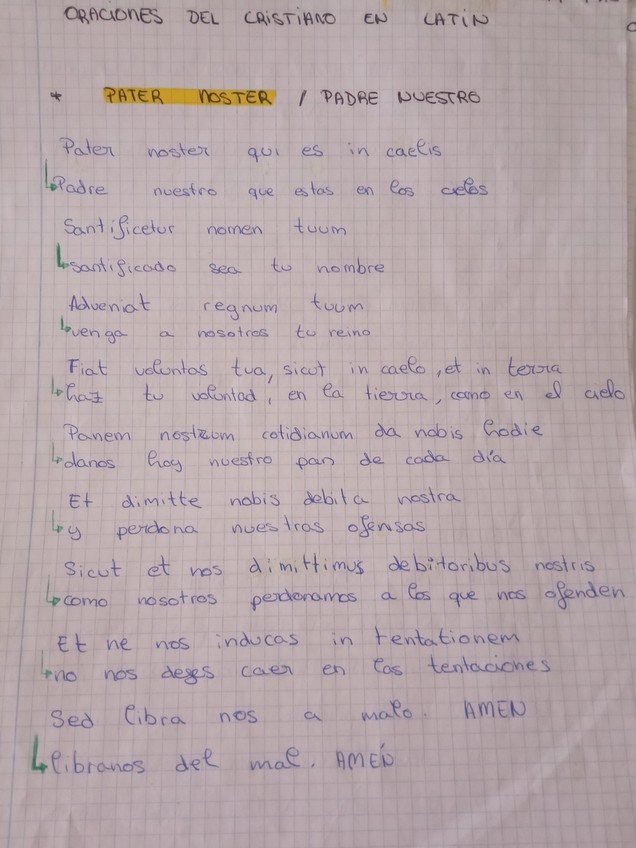 ORACIONES DEL CRISTIANO EN LATIN
* PATER NOSTER / PADRE NUESTRO
Pater noster qui es in caelis
Padre nuestro que estas en los cielos
Santificetur nomen tuum
santificado sea tu nombre
Adveniat regnum tuum
venga a nosotros tu reino
Fiat voluntas tua, sicut in caelo, et in terra
haz tu voluntad, en la tierra, como en el cielo
Panem nostrum cotidianum da nobis hodie
danos hoy nuestro pan de cada día
Et dimitte nobis debita nostra
y perdona nuestras ofensas
Sicut et nos dimittimus debitoribus nostris
como nosotros perdonamos a los que nos ofenden
Et ne nos inducas in tentationem
no nos dejes caer en las tentaciones
Sed libra nos a malo. AMEN
libranos del mal. AMÉN